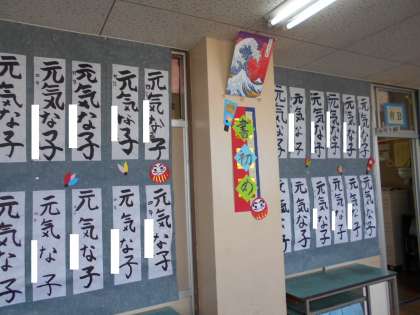 元気な子
元気な子
元気な子
元気な子
元気な子
元気な子
元気な子
元気な子
元気な子
元気な子
書初め
元気な子
元気な子
元気な子
元気な子
元気な子
元気な子
元気な子
元気な子
元気な子
元気な子
元気な子
元気な子